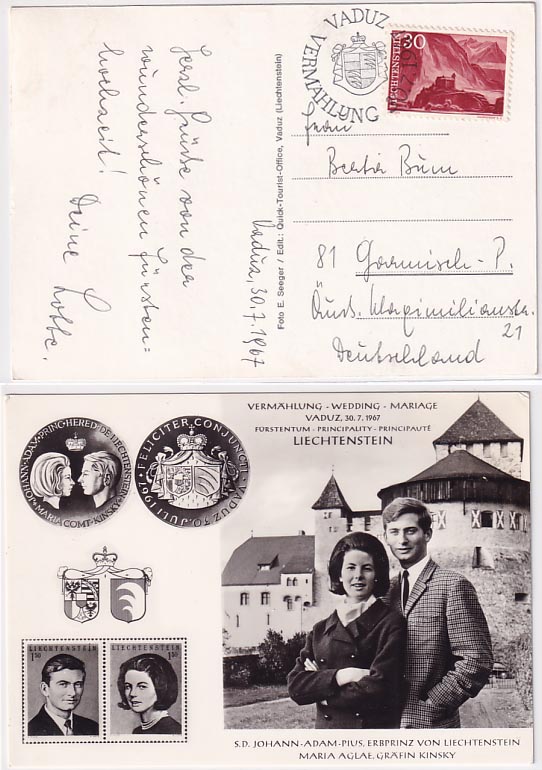 VADUZ
VERMÄHLUNG
30
LIECHTENSTEIN
Herzl. Grüße von der
wunderschönen Fürsten=
hochzeit!
Deine Lotte.
Vaduz, 30.7.1967
Foto E. Seeger / Edit.: Quick-Tourist-Office, Vaduz (Liechtenstein)
Frau
81 Garmisch-P.
Maximilianstr.
21
Deutschland
VERMÄHLUNG - WEDDING - MARIAGE
VADUZ, 30. 7. 1967
FÜRSTENTUM - PRINCIPALITY - PRINCIPAUTÉ
LIECHTENSTEIN
JOHANN·ADAM·PRINC·HERED·DE·LIECHTENSTEIN
MARIA COMT·KINSKY
FELICITER CONJUNCTI
VADUZ 30. JULI 1967
LIECHTENSTEIN
1.50
LIECHTENSTEIN
1.50
S.D. JOHANN-ADAM-PIUS, ERBPRINZ VON LIECHTENSTEIN
MARIA AGLAE, GRÄFIN KINSKY